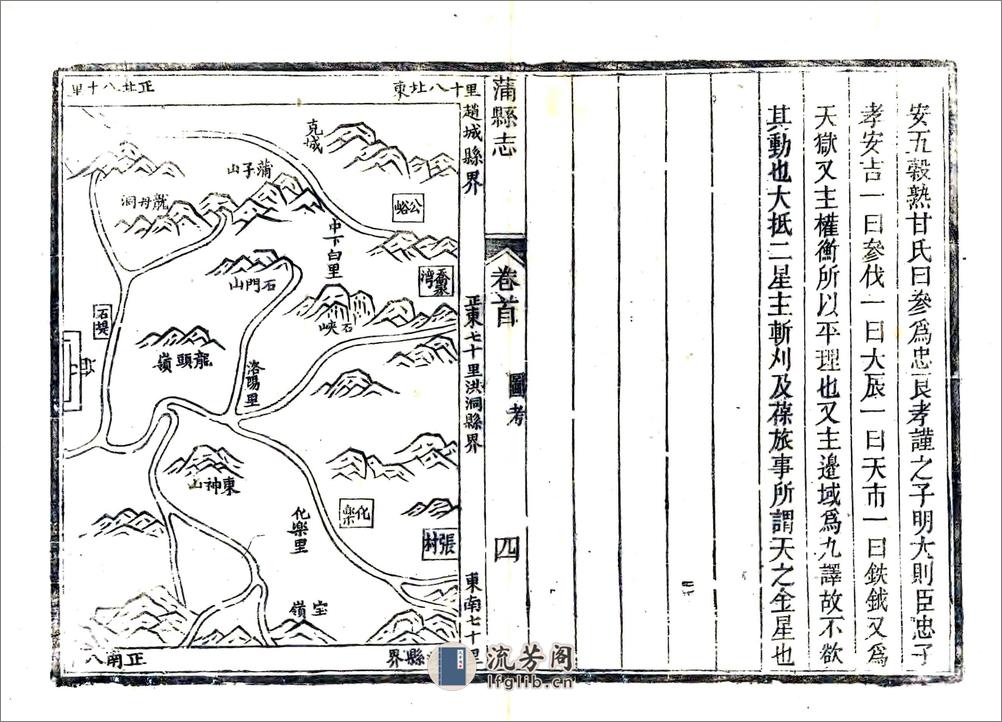 安五穀熟甘氏曰參爲忠良孝謹之子明大則臣忠子
孝安吉一曰參伐一曰大辰一曰天市一曰鈇鉞又爲
天獄又主權衡所以平理也又主邊域爲九譯故不欲
其動也大抵二星主斬刈及葆旅事所謂天之金星也
蒲縣志
卷首
圖考
四
東北八十里
趙城縣界
正東七十里洪洞縣界
東南七十里
正北八十里
克城
公峪
蒲子山
龍毋洞
中下白里
石門山
石峽
龍頭嶺
洛陽里
東神山
化樂
化樂里
張村
宝嶺
縣界
正南八
流芳阁
lfglib.cn